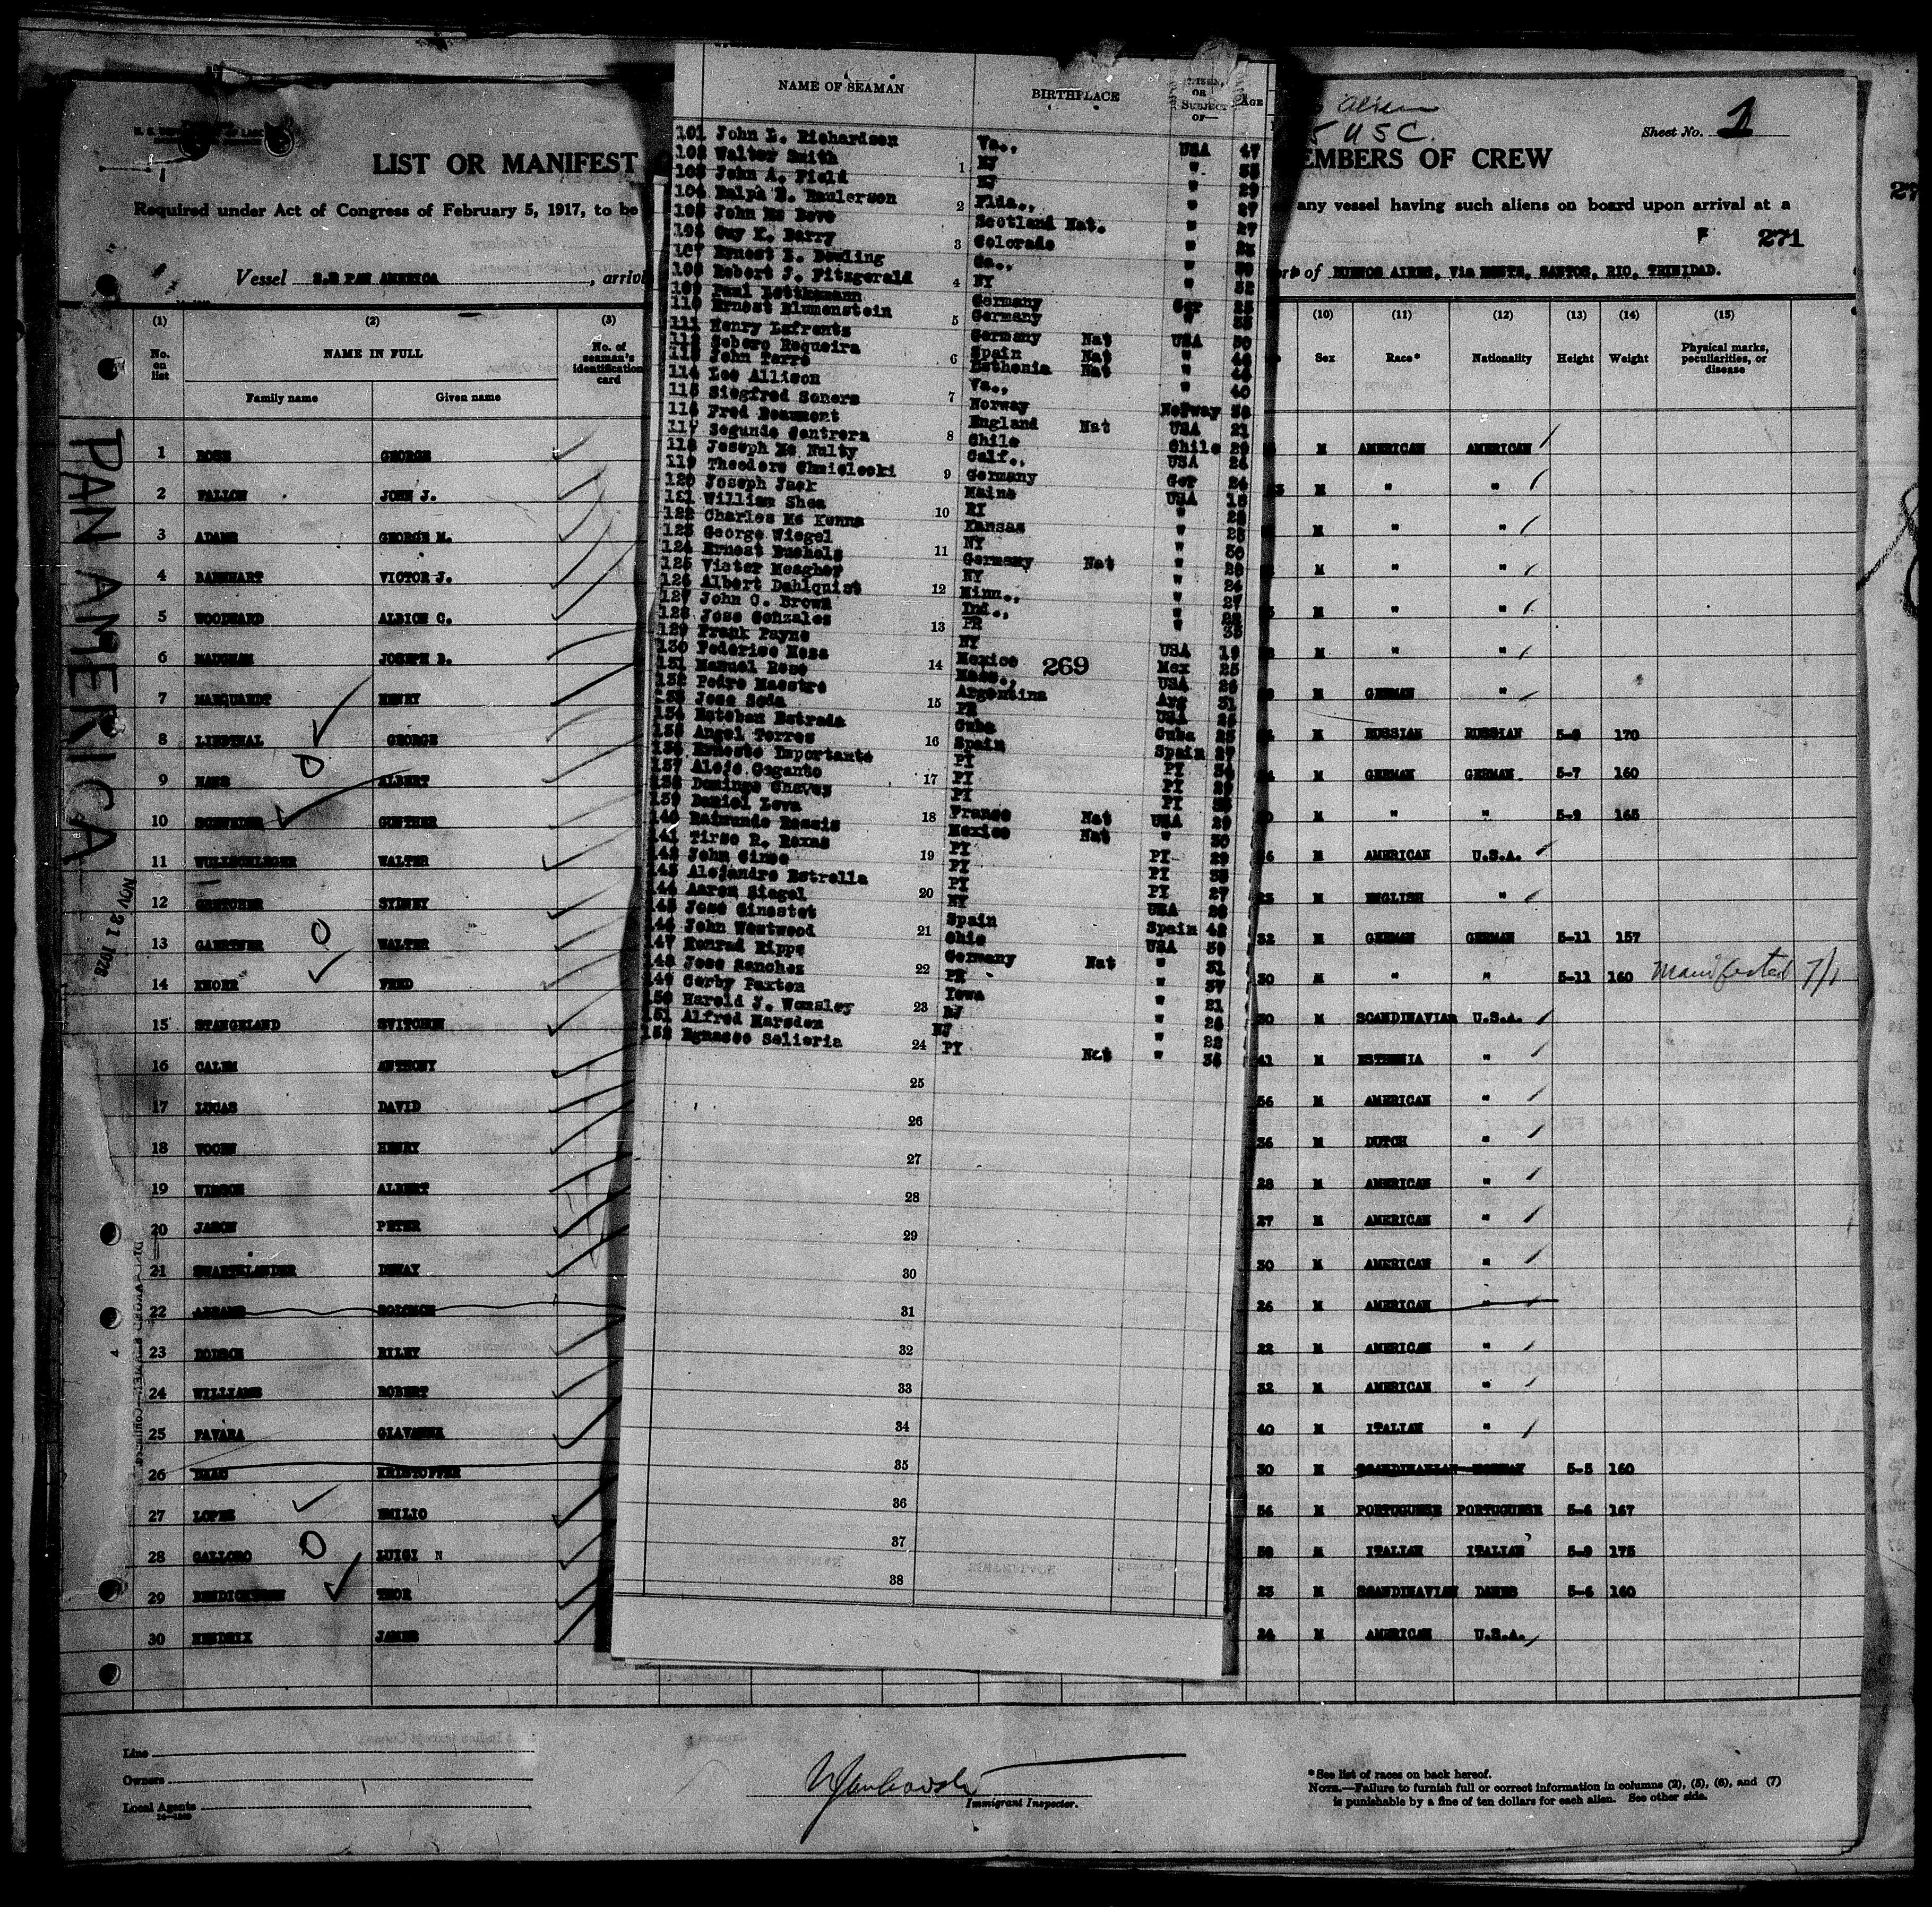 Sheet No. 1
5 USC.
LIST OR MANIFEST
EMBERS OF CREW
Required under Act of Congress of February 5, 1917, to be
any vessel having such aliens on board upon arrival at a
F 271
Vessel S.S PAN AMERICA, arriv
of BUENOS AIRES, Via MONTE, SANTOS, RIO, TRINIDAD.
PAN AMERICA
NOV 21 1928
(1) (2) (3) (10) (11) (12) (13) (14) (15)
No. on list
NAME IN FULL
Family name Given name
No. of seaman's identification card
Sex Race* Nationality Height Weight Physical marks, peculiarities, or disease
1 ROSS GEORGE M AMERICAN AMERICAN
2 FALLON JOHN J. M " "
3 ADAMS GEORGE M. M " "
4 BARNHART VICTOR J. M " "
5 WOODWARD ALBION C. M " "
6 JOSEPH B. M " "
7 MARQUARDT HENRY M GERMAN "
8 LINDTHAL GEORGE M RUSSIAN RUSSIAN 5-9 170
9 HANS ALBERT M GERMAN GERMAN 5-7 160
10 SCHNEIDER GUNTHER M " " 5-9 165
11 WULLSCHLEGER WALTER M AMERICAN U.S.A.
12 GRETCHER SYDNEY M ENGLISH "
13 GAERTNER WALTER 32 M GERMAN GERMAN 5-11 157
14 KNORR FRED 30 M " " 5-11 160 Manifested 7/1
15 STANGELAND SVITCHEN 30 M SCANDINAVIAN U.S.A.
16 CALEM ANTHONY 41 M ESTHENIA "
17 LUCAS DAVID 56 M AMERICAN "
18 HENRY 36 M DUTCH "
19 ALBERT 28 M AMERICAN "
20 JASON PETER 27 M AMERICAN "
21 SWARTSLANDER DEWAY 30 M AMERICAN "
22 ABRAMS SOLOMON 26 M AMERICAN "
23 DODSON RILEY 22 M AMERICAN "
24 WILLIAMS ROBERT 32 M AMERICAN "
25 FAVARA GIAVANNA 40 M ITALIAN "
26 KRISTOFFER 30 M SCANDINAVIAN NORWAY 5-5 160
27 LOPES EMILIO 56 M PORTUGUESE PORTUGUESE 5-6 167
28 LUIGI N M ITALIAN ITALIAN 5-9 175
29 BENDICKTSON THOR 23 M SCANDINAVIAN DANES 5-6 160
30 HENDRIX JAMES 24 M AMERICAN U.S.A.
NAME OF SEAMAN BIRTHPLACE CITIZEN, OR SUBJECT OF— AGE
101 John L. Richardson Va., USA 47
102 Walter Smith NJ " 35
103 John A. Field NJ " 29
104 Ralph B. Raulerson Flda., " 27
105 John Mc Bove Scotland Nat. " 27
106 Guy K. Barry Colorado "
107 Ernest E. Dowling Ga., "
108 Robert J. Fitzgerald NY " 32
109 Paul Germany Ger 25
110 Ernest Blumenstein Germany " 35
111 Henry Lafrentz Germany Nat USA 30
112 Sebero Requeira Spain Nat "
113 John Tarro Esthenia Nat "
114 Lee Allison Va., " 40
115 Siegfred Soners Norway Norway 38
116 Fred Beaumont England Nat USA 21
117 Segundo Contrera Chile Chile 29
118 Joseph Mc Nulty Calf., USA 26
119 Theodore Chmieleski Germany Ger 24
120 Joseph Jack Maine USA 18
121 William Shea RI "
122 Charles Mc Kenna Kansas " 25
123 George Wiegel NY " 30
124 Ernest Buchols Germany Nat "
125 Victor Meagher NY " 24
126 Albert Dahlquist Minn., " 27
127 John C. Brown Ind., "
128 Jose Gonzales PR " 35
129 Frank Payne NY USA 19
130 Federico Mesa Mexico Mex 25
269
131 Manuel Rose Mass., USA 26
132 Pedro Maestre Argentina Arg 31
133 Jose Soda PR USA 25
134 Esteban Estrada Cuba Cuba 25
135 Angel Torres Spain Spain 27
136 Ernesto Importante PI PI
137 Alejo Gogante PI PI
138 Domingo Chaves PI PI
139 Daniel Leva France Nat USA 29
140 Raimundo Rassis Mexico Nat " 30
141 Tirso R. Roxas PI PI 29
142 John Ginso PI PI 35
143 Alejandro Estrella PI PI 27
144 Aaron Siegel NY USA 26
145 Jose Ginestet Spain Spain 42
146 John Westwood Ohio USA 39
147 Konrad Rippe Germany Nat " 31
148 Jose Sanchez PR " 37
149 Corby Paxton Iowa " 21
150 Harold J. Womsley NJ " 26
151 Alfred Marsden NJ " 22
152 Egnasee Salieria PI Nat " 36
1
2
3
4
5
6
7
8
9
10
11
12
13
14
15
16
17
18
19
20
21
22
23
24
25
26
27
28
29
30
31
32
33
34
35
36
37
38
Line
Owners
Local Agents
Immigrant Inspector.
*See list of races on back hereof.
NOTE.—Failure to furnish full or correct information in columns (2), (5), (6), and (7)
is punishable by a fine of ten dollars for each alien. See other side.